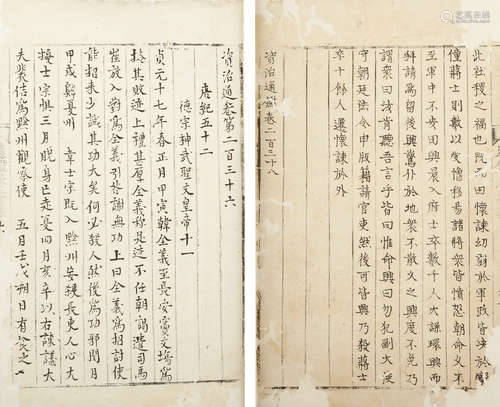 此社稷之福也既而田懷諫幼弱於軍政皆決於家
僮蔣士則數以愛憎移易諸將衆皆憤怒朝命久不
至軍中不安田興晨入府士卒數千人大譟環興而
拜請爲留後興驚仆於地衆不散久之興度不免乃
謂衆曰汝肯聽吾言乎皆曰惟命興曰勿犯副大使
守朝廷法令申版籍請官吏然後可皆興乃殺蔣士
卒十餘人遷懷諫於外
資治通鑑卷二百三十八
資治通卷第二百三十六
唐紀五十二
德宗神武聖文皇帝十一
貞元十七年春正月甲寅韓全義至長安竇文場爲
掩其敗迹上禮其厚全義稱足不任朝謁遣司馬
崔放入對爲全義引咎謝無功上曰全義爲招討使
能招來少誠其功大矣何必殺人然後爲功邪閏月
甲戌歸夏州 韋士宗既入黔州妄殺長吏人心大
擾士宗懼三月脫身亡走夏四月亥辛以右諫議大
夫裴佶爲黔州觀察使 五月壬戌朔日有食之